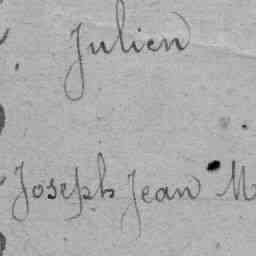 Julien
Joseph Jean